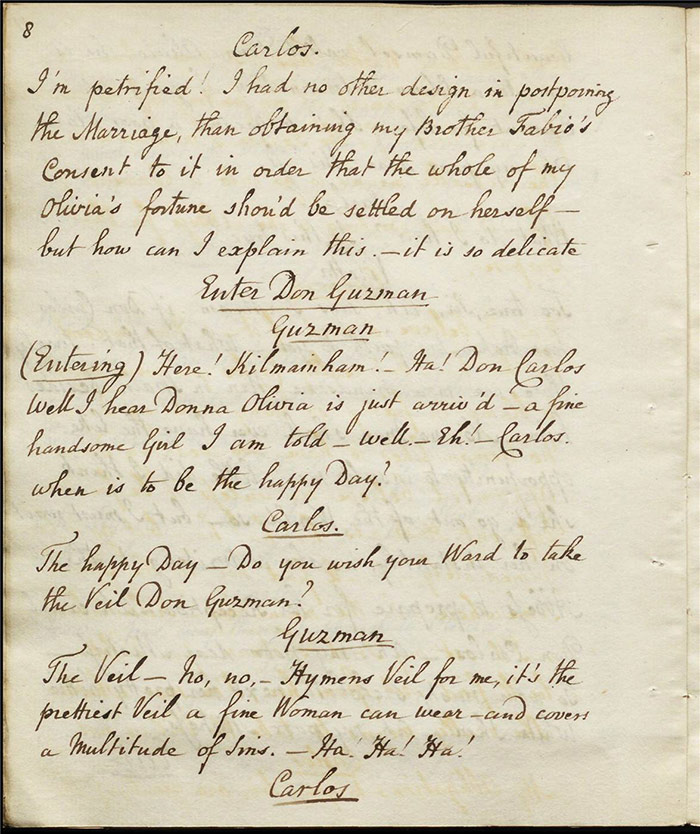 8
Carlos.
I'm petrified! I had no other design in postponing
the Marriage, than obtaining my Brother Fabio's
Consent to it in order that the whole of my
Olivia's fortune shou'd be settled on herself —
but how can I explain this. — it is so delicate
Enter Don Guzman
Guzman
(Entering) Here! Kilmainham! — Ha! Don Carlos
Well I hear Donna Olivia is just arriv'd — a fine
handsome Girl I am told — well. — Eh! — Carlos.
when is to be the happy Day?
Carlos.
The happy Day — Do you wish your Ward to take
the Veil Don Guzman?
Guzman
The Veil — no, no, — Hymens Veil for me, it's the
prettiest Veil a fine Woman can wear — and covers
a Multitude of Sins. — Ha! Ha! Ha!
Carlos